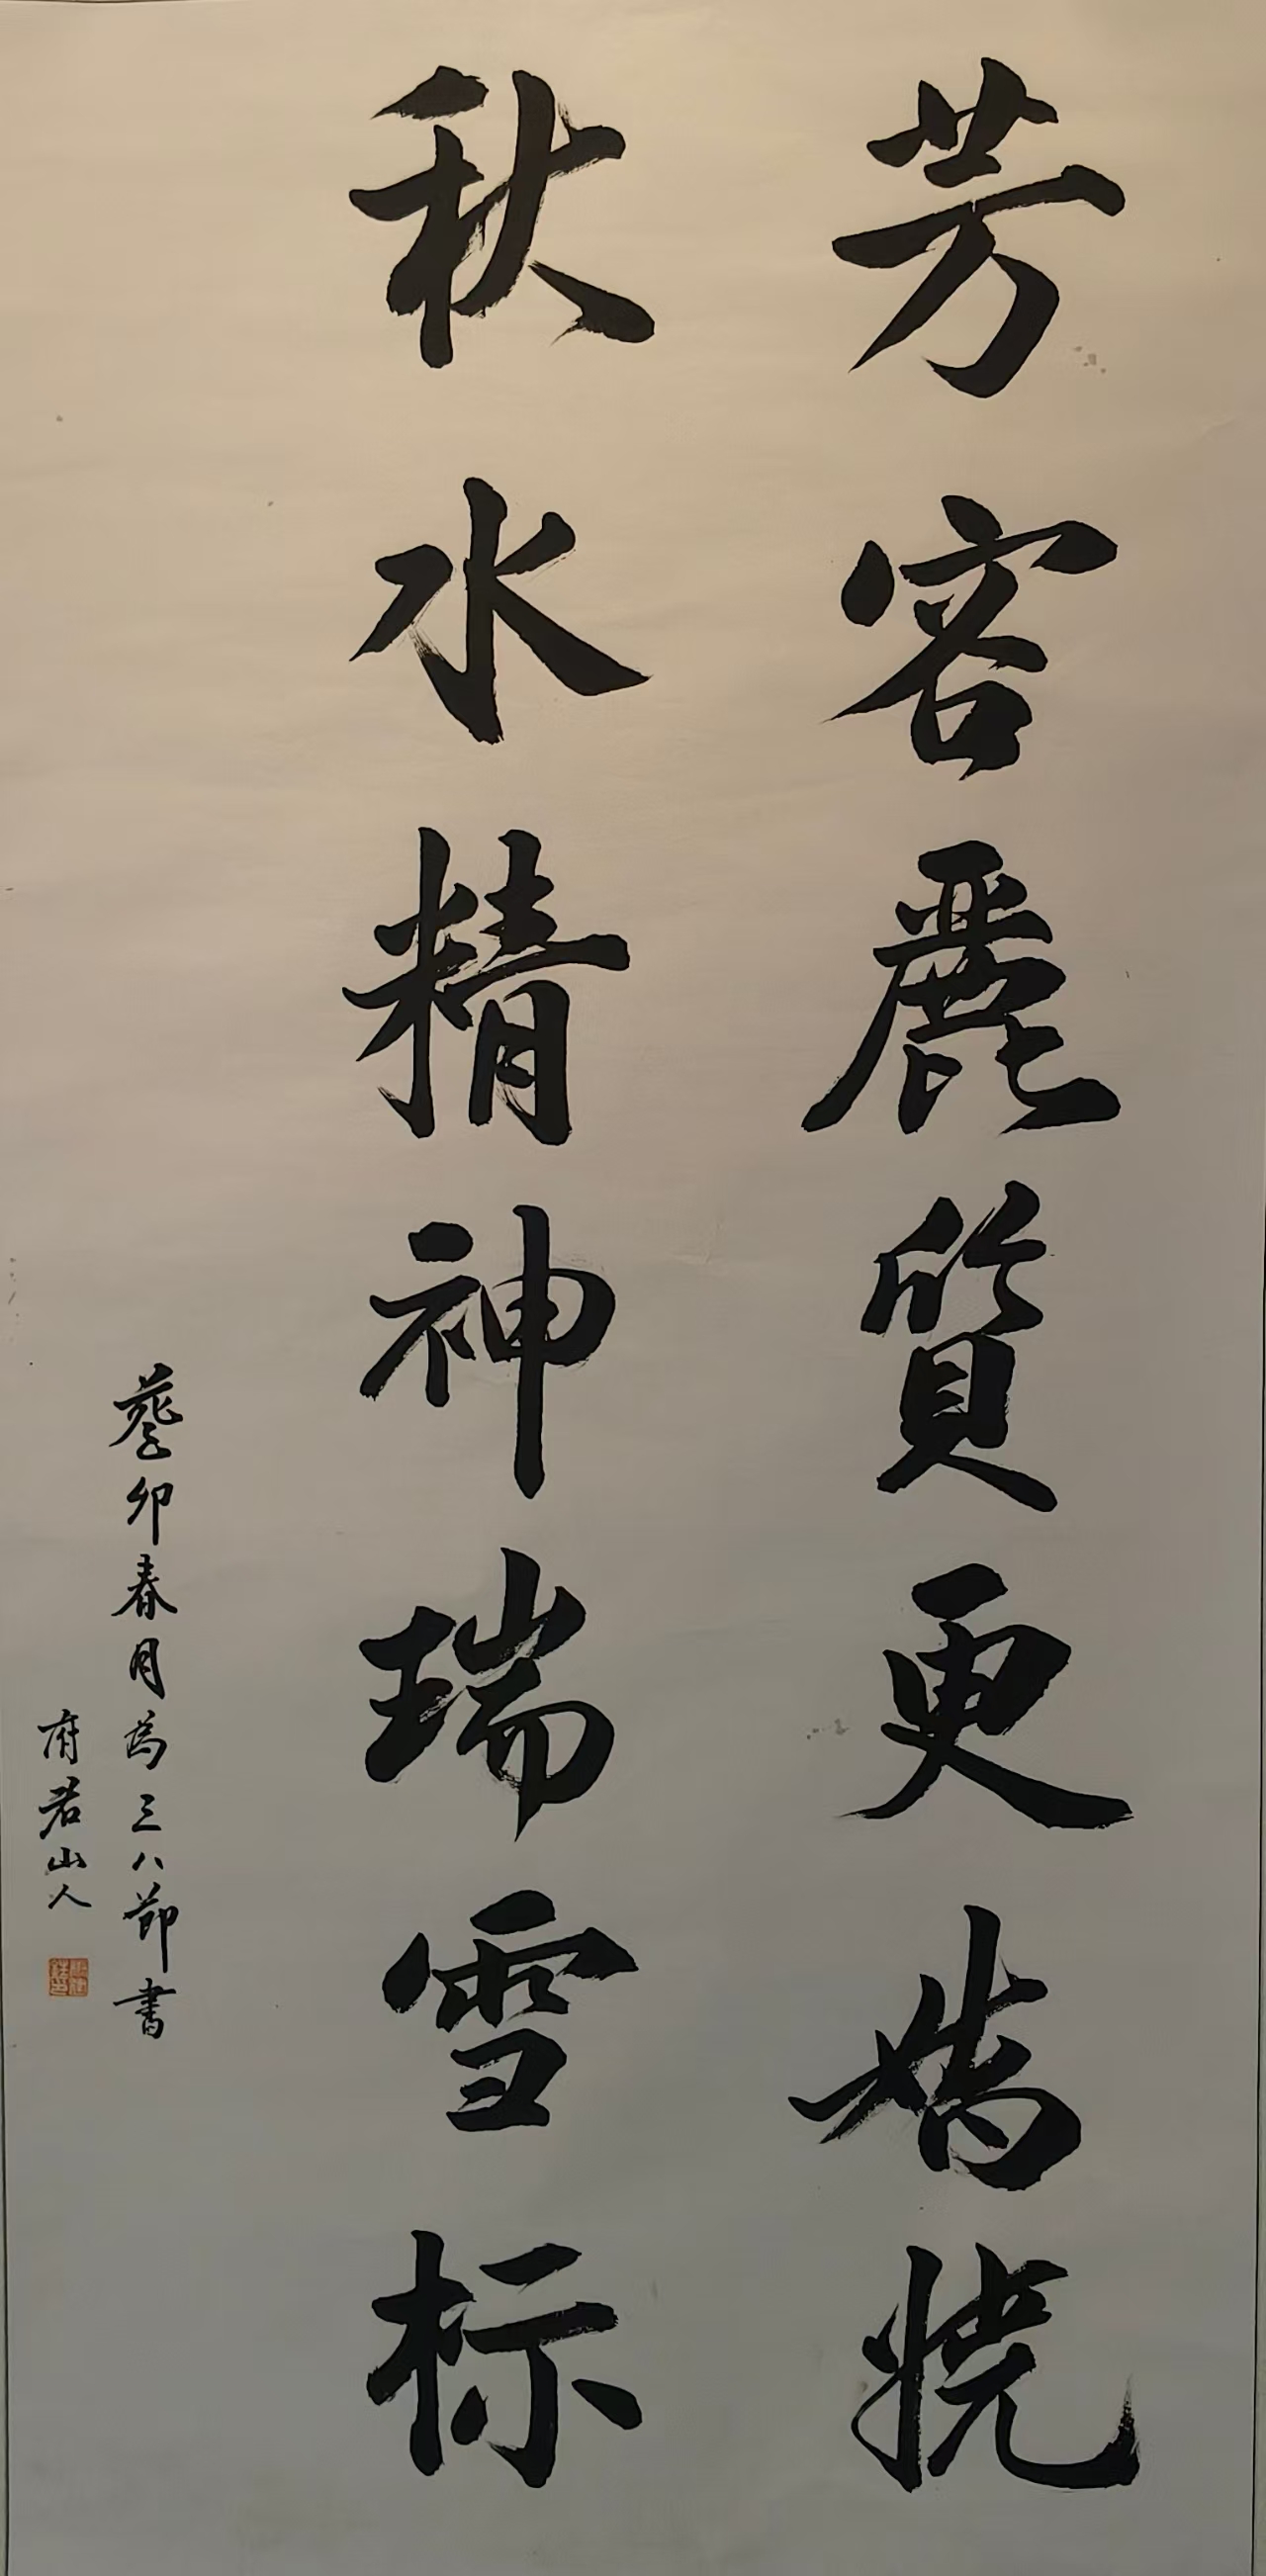 芳容麗質更嬌娆
秋水精神瑞雪标
癸卯春月為三八節書
府君山人